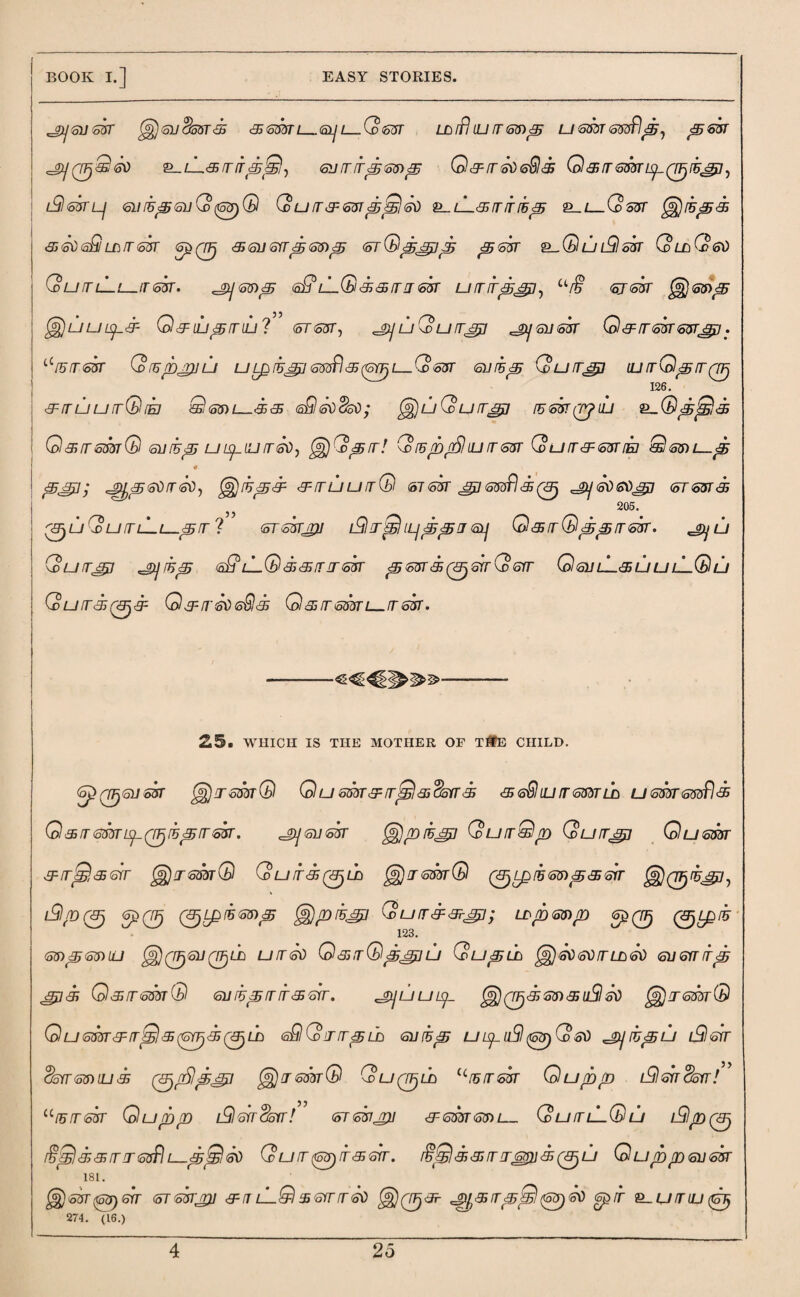 BOOK I.] EASY STORIES.
அவன் இவனைக் கண்டவுடனே மரியாதை பண்ணித், தன்
அருகில் உட்கார்த்தி, வார்த்தை சொல்லிக் கொண்டிருந்து,
பின்பு வந்தவனோடு போசனத்தில் உட்கார்ந்த உடனே இந்தக்
கல்விமான் ஒரு கவளத்தை எடுத்துத் தன் உடுப்பின் மேலே
போட்டான். அதை வீட்டுக்காரன் பார்த்து, “நீ ஏன் இதை
இப்படிச் செய்தாய்?” என், அப்போது அவன் சொன்னது.
“நான் நேற்றுப் பழந்துணிகளுடனே வந்த போது யாதொரு
126.
சாப்பாடுங் கிடைக்க வில்லை; இப்போது நன்றாய் உடுத்திக்
கொண்டு வந்த படியால், இதோ! நேற்றியான போசனங் கிடைத்
தது; ஆதலால், இந்தச் சாப்பாடு என் துணிக்கு அல்லது எனக்
205.
குப்போட்டதா?” என்று பிரத்தியுத்தரவு கொடுத்தான். அப்
போது அந்த வீட்டுக்காரன் தனக்குள்ளே வெட்கப் பட்டுப்
போக்குச் சொல்லிக் கொண்டான்.
25. WHICH IS THE MOTHER OF THE CHILD.
ஒருவன் இரண்டு பெண்சாதிகளைக் கலியாணம் பண்ணிக்
கொண்டிருந்தான். அவன் இறந்து போகிற போது பெண்
சாதிகள் இரண்டு போர்க்கும் இரண்டு குழந்தைகள் இருந்து,
பிறகு ஒரு குழந்தை இறந்து போச்சுது; மற்றை ஒரு குழந்
123.
தையை இருவரும் பால் கொடுத்துப் பேதம் இல்லாமல் வளர்த்
துக் கொண்டு வந்தார்கள். அப்படி இருக்கையில் இரண்டு
பெண்சாதிகளுக்கும் விரோதம் வந்த படியினாலே அந்தப் பிள்
ளையைக் குறித்து இரண்டு பேரும் “நான் பெற்ற பிள்ளை!”
“நான் பெற்ற பிள்ளை!” என்று சண்டை போட்டுப் பிறகு
நீதிக்காரனிடத்தில் போனார்கள். நீதிக்காரனுக்குப் பெற்றவள்
181.
இன்னாள் என்று சாட்சிகளால் இருசு ஆகாததினால் ஓர் உபாயஞ்
274. (16.)
4 25